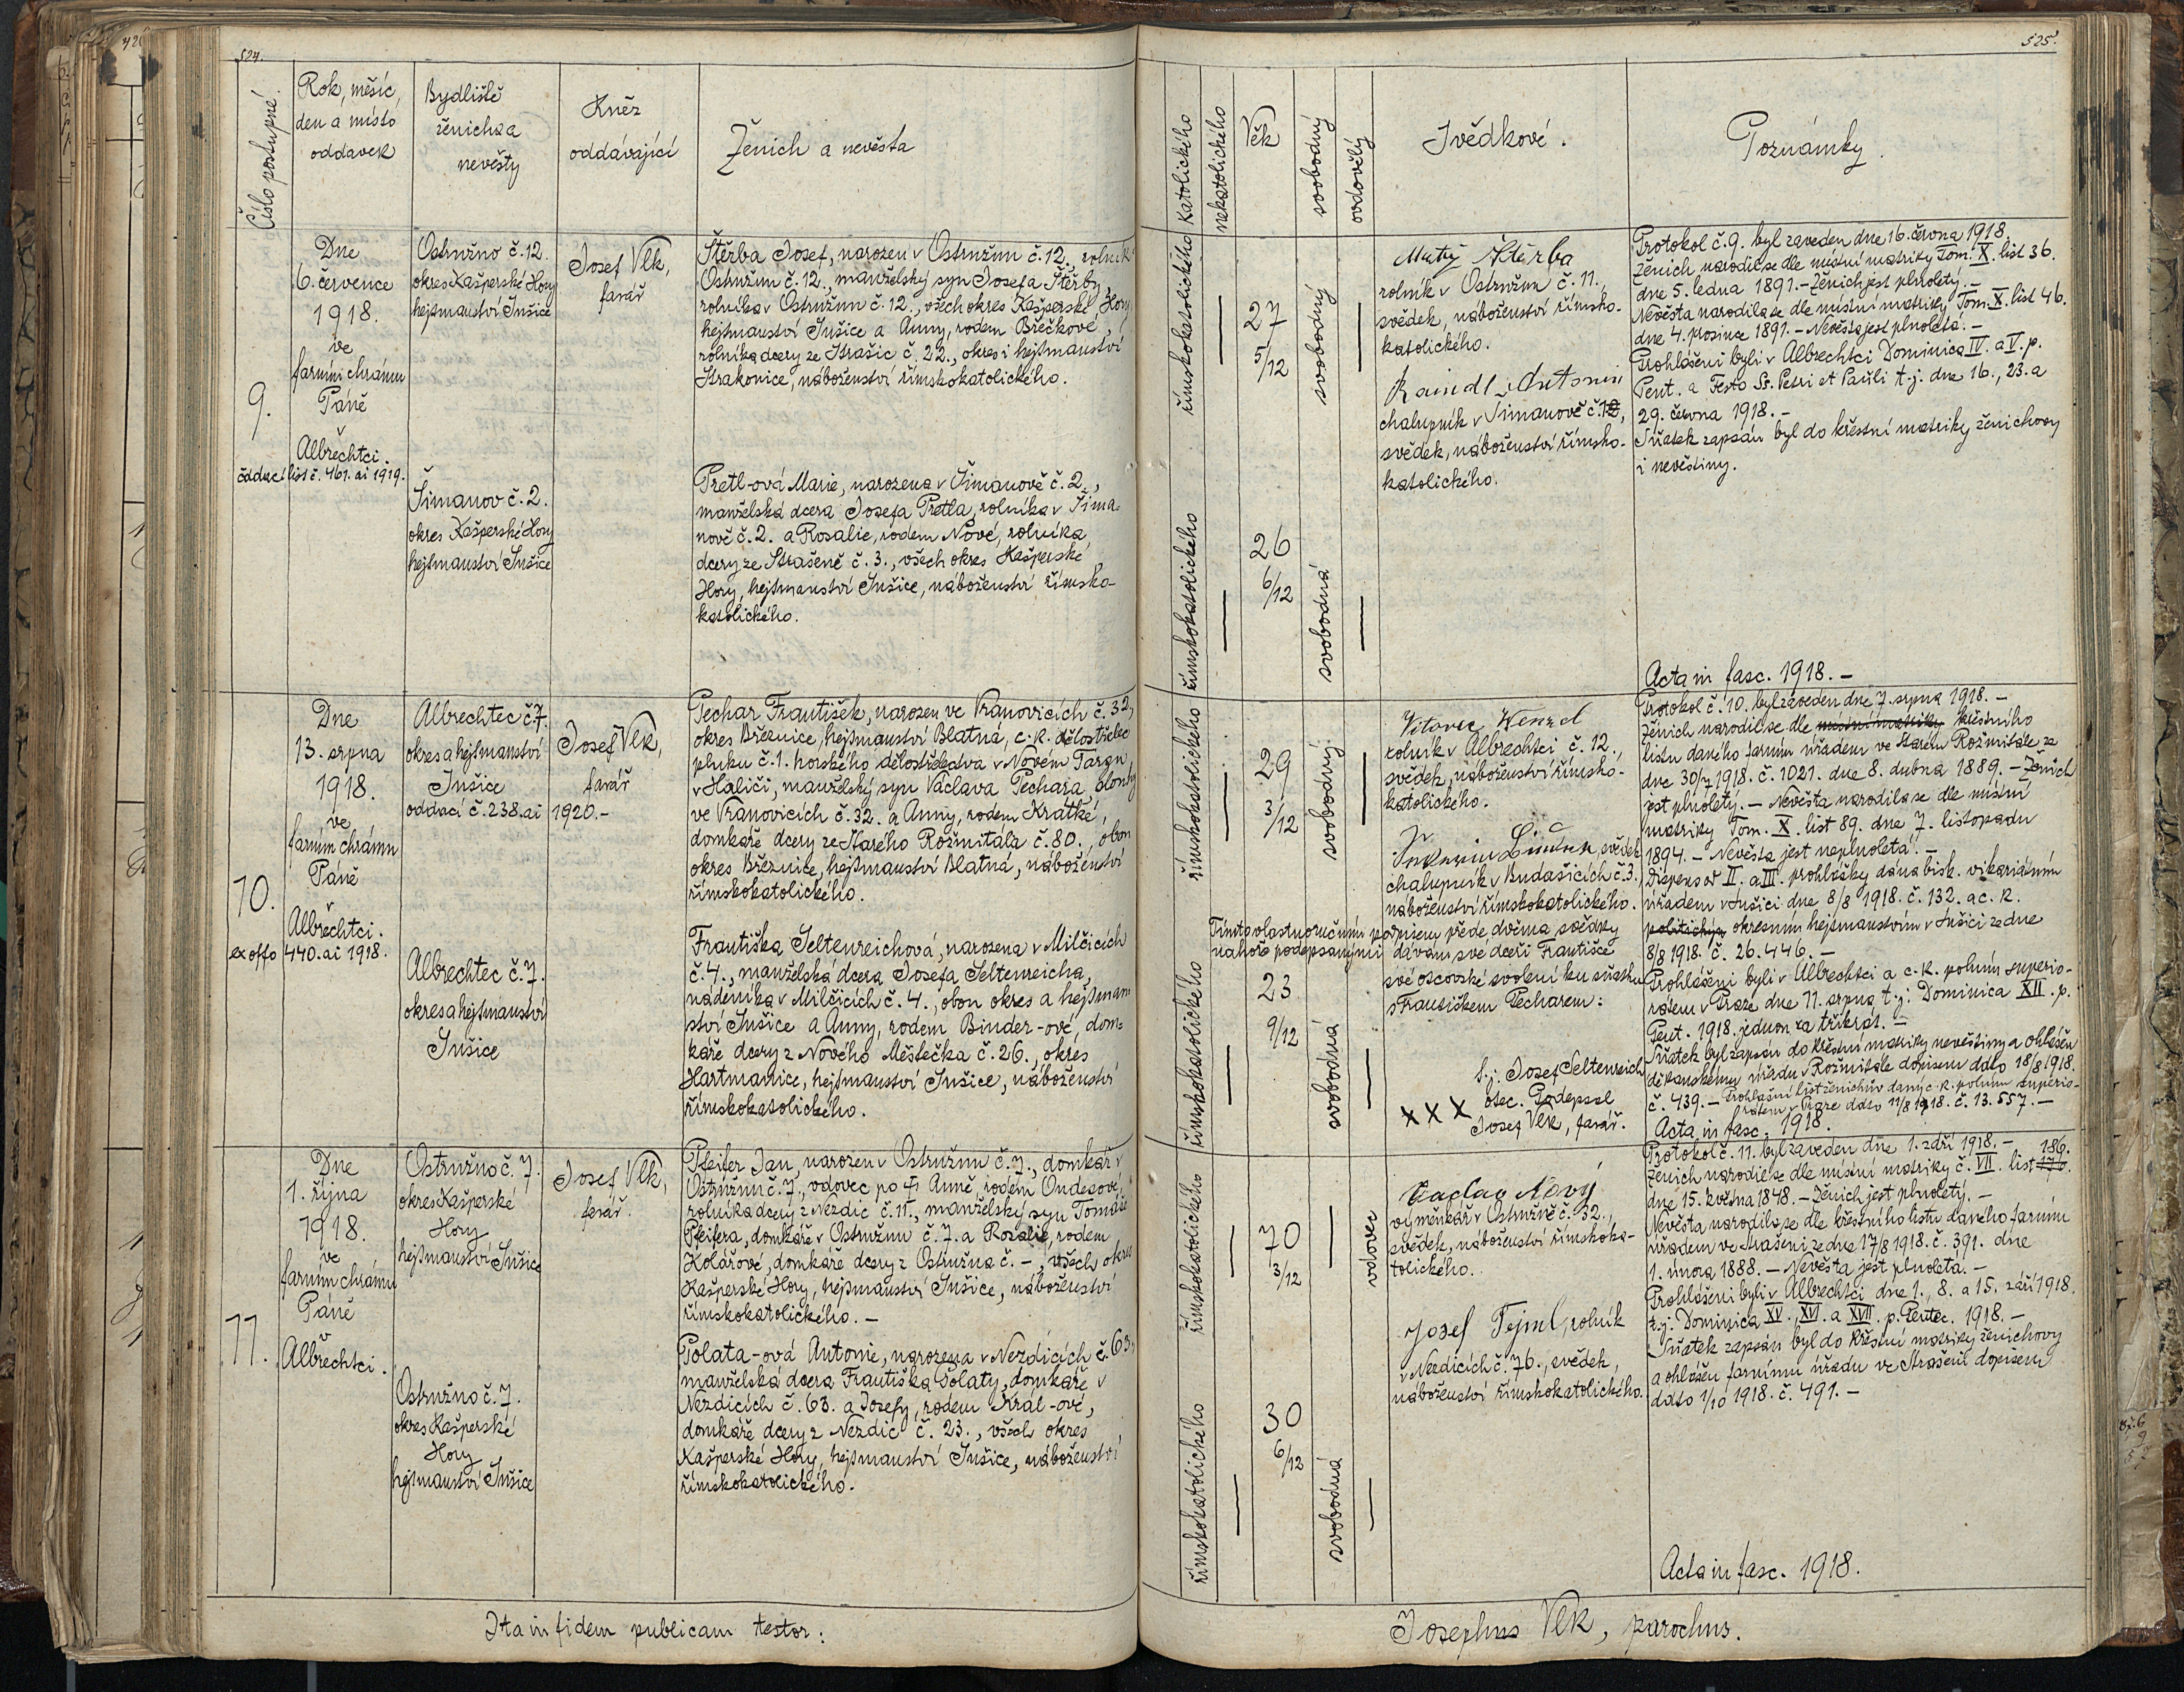 524.
Číslo postupné.
Rok, měsíc,
den a místo
oddavek
Bydliště
ženicha a
nevěsty
Kněz
oddávající
Ženich a nevěsta
9.
Dne
6. července
1918.
ve
farním chrámu
Páně
v
Albrechtci.
oddací list č. 461. ai 1919.
Ostružno č. 12.
okres Kašperské Hory
hejtmanství Sušice
Šimanov č. 2.
okres Kašperské Hory
hejtmanství Sušice
Josef Vlk,
farář
Štěrba Josef, narozen v Ostružnu č. 12., rolník v
Ostružnu č. 12., manželský syn Josefa Štěrby,
rolníka v Ostružnu č. 12., všech okres Kašperské Hory
hejtmanství Sušice a Anny, rodem Brečkové,
rolníka dcery ze Strašic č. 22., okres i hejtmanství
Strakonice, náboženství římskokatolického.
Pretl-ová Marie, narozena v Šimanově č. 2.,
manželská dcera Josefa Pretla, rolníka v Šima-
nově č. 2. a Rosalie, rodem Nové, rolníka
dcery ze Strašeně č. 3., všech okres Kašperské
Hory, hejtmanství Sušice, náboženství římsko-
katolického.
10.
Dne
13. srpna
1918.
ve
farním chrámu
Páně
v
Albrechtci.
ex offo 440. ai 1918.
Albrechtec č. 7.
okres a hejtmanství
Sušice
oddací č. 238. ai 1920.-
Albrechtec č. 7.
okres a hejtmanství
Sušice
Josef Vlk,
farář
Pechar František, narozen ve Vranovicích č. 32,
okres Březnice, hejtmanství Blatná, c. k. dělostřelec
pluku č. 1. horského dělostřelectva v Novém Targu
v Haliči, manželský syn Václava Pechara,
ve Vranovicích č. 32. a Anny, rodem Krátké,
domkáře dcery ze Starého Rožmitála č. 80., obou
okres Březnice, hejtmanství Blatná, náboženství
římskokatolického.
Františka Seltenreichová, narozena v Milčicích
č. 4., manželská dcera Josefa Seltenreicha,
nádeníka v Milčicích č. 4., obou okres a hejtman
ství Sušice a Anny, rodem Binder-ové, dom-
káře dcery z Nového Městečka č. 26., okres
Hartmanice, hejtmanství Sušice, náboženství
římskokatolického.
11.
Dne
1. října
1918.
ve
farním chrámu
Páně
v
Albrechtci.
Ostružno č. 7.
okres Kašperské
Hory
hejtmanství Sušice
Ostružno č. 7.
okres Kašperské
Hory
hejtmanství Sušice
Josef Vlk,
farář.
Pfeifer Jan, narozen v Ostružnu č. 7., domkář v
Ostružnu č. 7., vdovec po † Anně, rodem Ondesové,
rolníka dcery z Nezdic č. 11., manželský syn Tomáše
Pfeifera, domkáře v Ostružnu č. 7. a Rozalie, rodem
Kolářové, domkáře dcery z Ostružna č. -, všech okres
Kašperské Hory, hejtmanství Sušice, náboženství
římskokatolického. -
Polata-ová Antonie, narozena v Nezdicích č. 63,
manželská dcera Františka Polaty, domkáře v
Nezdicích č. 63. a Josefy, rodem Král-ové,
domkáře dcery z Nezdic č. 23., všech okres
Kašperské Hory, hejtmanství Sušice, náboženství
římskokatolického.
Ita in fidem publicam testor:
525.
katolického
nekatolického
Věk
svobodný
ovdovělý
Svědkové.
Poznámky.
římskokatolického
27
5/12
svobodný
římskokatolického
26
6/12
svobodná
Matěj Štěrba
rolník v Ostružnu č. 11.,
svědek, náboženství římsko-
katolického.
Raindl Antonín
chalupník v Šimanově č.
svědek, náboženství římsko-
katolického.
Protokol č. 9. byl zaveden dne 16. června 1918.
Ženich narodil se dle místní matriky Tom. X. list 36.
dne 5. ledna 1891. - Ženich jest plnoletý. -
Nevěsta narodila se dle místní matriky Tom. X. list 46.
dne 4. prosince 1891. - Nevěsta jest plnoletá. -
Prohlášeni byli v Albrechtci Dominica IV. a V. p.
Pent. a Festo Ss. Petri et Pauli t. j. dne 16., 23. a
29. června 1918. -
Sňatek zapsán byl do křestní matriky ženichovy
i nevěstiny.
Acta in fasc. 1918. -
římskokatolického
29
3/12
svobodný
římskokatolického
23
9/12
svobodná
Vitovec Wenzel
rolník v Albrechtci č. 12.,
svědek, náboženství římsko-
katolického.
svědek
chalupník v Budašicích č. 3.,
náboženství římskokatolického.
Tímto vlastnoručním podpisem přede dvěma svědky
nahoře podepsanými dávám své dceři Františce
své otcovské svolení ku sňatku
s Františkem Pecharem:
Josef Seltenreich
otec. Podepsal
XXX Josef Vlk, farář.
Protokol č. 10. byl zaveden dne 7. srpna 1918. -
Ženich narodil se dle místní matriky křestního
listu daného farním úřadem ve Starém Rožmitále ze
dne 30/7 1918. č. 1021. dne 8. dubna 1889. - Ženich
jest plnoletý. - Nevěsta narodila se dle místní
matriky Tom. X. list 89. dne 7. listopadu
1894. - Nevěsta jest neplnoletá. -
Dispens od II. a III. prohlášky dána bisk. vikariátním
úřadem v Sušici dne 8/8 1918. č. 132. a c. k.
politickým okresním hejtmanstvím v Sušici ze dne
8/8 1918. č. 26.446. -
Prohlášeni byli v Albrechtci a c. k. polním superio-
rátem v Praze dne 11. srpna t. j. Dominica XII. p.
Pent. 1918. jednou za třikrát. -
Sňatek byl zapsán do křestní matriky nevěstiny a ohlášen
děkanskému úřadu v Rožmitále dopisem ddto 18/8 1918.
č. 439. - Prohlašní list ženichův daný c. k. polním superio-
rátem v Praze ddto 11/8 1918. č. 13.557. -
Acta in fasc. 1918.
římskokatolického
70
3/12
vdovec
římskokatolického
30
6/12
svobodná
Václav Nový
výměnkář v Ostružně č. 32.,
svědek, náboženství římskoka-
tolického.
Josef Tejml, rolník
v Nezdicích č. 76., svědek,
náboženství římskokatolického.
Protokol č. 11. byl zaveden dne 1. září 1918. -
Ženich narodil se dle místní matriky č. VII. list 186.
dne 15. května 1848. - Ženich jest plnoletý. -
Nevěsta narodila se dle křestního listu daného farním
úřadem ve Strašeni ze dne 17/8 1918. č. 391. dne
1. února 1888. - Nevěsta jest plnoletá. -
Prohlášeni byli v Albrechtci dne 1., 8. a 15. září 1918.
t. j. Dominica XV., XVI. a XVII. p. Pentec. 1918. -
Sňatek zapsán byl do křestní matriky ženichovy
a ohlášen farnímu úřadu ve Strašeni dopisem
ddto 1/10 1918. č. 491. -
Acta in fasc. 1918.
Josephus Vlk, parochus.